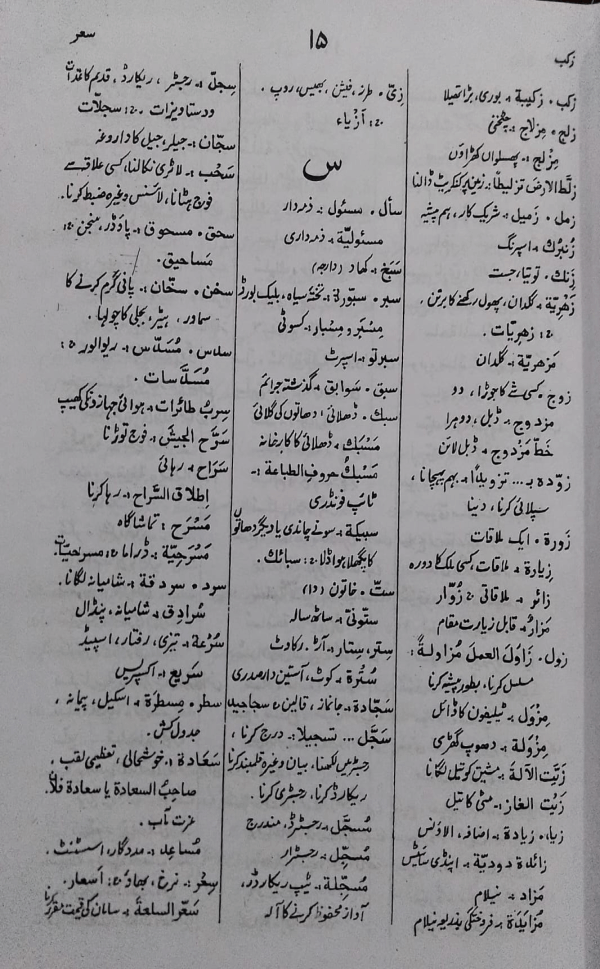 زکب
۱۵
سعر
زکب ۔ زکیبة :۔ بوری، بڑا تھیلا
زلج ۔ مِزلاج :۔ چٹخنی
مِزلج :۔ پھسلواں کھڑاؤں
زلّط الارضَ تزلیطًا :۔ زمین پر کنکریٹ ڈالنا
زمل ۔ زمیل :۔ شریک کار، ہم پیشہ
زُنبرک :۔ اسپرنگ
زنک ۔ توتیا، جست
زَھریّة :۔ گلدان، پھول رکھنے کا برتن ۔
ج: زھریّات ۔
مَزھریة :۔ گلدان
زوج ۔ کسی شے کا جوڑا، دو
مزدوج :۔ ڈبل، دوہرا
خطّ مَزدوج :۔ ڈبل لائن
زوّدہ بـ ... تزویدًا :۔ بہم پہچانا ،
سپلائی کرنا، دینا
زَورة ۔ ایک ملاقات
زیارة :۔ ملاقات، کسی ملک کا دورہ
زائر :۔ ملاقاتی ج: زُوّار
مَزارٌ :۔ قابل زیارت مقام
زول ۔ زَاوَل العملَ مُزاولةً :۔
مسلسل کرنا، بطور پیشہ کرنا
مِزوَل :۔ ٹیلیفون کا ڈائل
مِزوَلة :۔ دھوپ گھڑی
زَیّت الآلةَ :۔ مشین کو تیل لگانا
زَیْت الغاز :۔ مٹی کا تیل
زیاد ۔ زیادة :۔ اضافہ، الاؤنس
زائدة دودیة :۔ اپنڈی سائٹس
مَزاد :۔ نیلام
مُزایَدَة :۔ فروختگی بذریعہ نیلام
زِیّ ۔ طرز، فیشن، بھیس، روپ ۔
ج: أزیاء
س
سأل ۔ مسئول :۔ ذمہ دار
مسئولیّة :۔ ذمہ داری
سَبَخ ۔ کھاد (دارجہ)
سبر ۔ سبّورة :۔ تختۂ سیاہ، بلیک بورڈ
مِسْبَر و مِسْبار :۔ کسوٹی
سبرتو :۔ اسپرٹ
سبق ۔ سَوابق :۔ گذشتہ جرائم
سبك ۔ ڈھلائی ؛ دھاتوں کی گلائی
مَسْبَك :۔ ڈھلائی کا کارخانہ
مَسْبكُ حروفِ الطباعة :۔
ٹائپ فونڈری
سبیکة :۔ سونے چاندی یا دیگر دھاتوں
کا پگھلا ہوا ڈلا ج: سبائك ۔
ستّ ۔ خاتون (دا)
ستّونیّ :۔ ساٹھ سالہ
ستر، ستار :۔ آڑ، رکاوٹ
سُترة :۔ کوٹ، آستین دار صدری
سَجّادة :۔ جانماز، قالین ج سجاجید
سَجّل ... تسجیلا :۔ درج کرنا ،
رجسٹر میں لکھنا، بیان وغیرہ قلمبند کرنا
ریکارڈ کرنا، رجسٹری کرنا ۔
مُسجَّل :۔ رجسٹرڈ، مندرج
مُسجِّل :۔ رجسٹرار
مُسَجّلة :۔ ٹیپ ریکارڈر،
آواز محفوظ کرنے کا آلہ
سِجلّ :۔ رجسٹر ، ریکارڈ ، قدیم کاغذات
ودستاویزات ۔ ج: سجلّات
سجّان :۔ جیلر، جیل کا داروغہ
سَحْب :۔ لاٹری نکالنا، کسی علاقے سے
فوج ہٹانا، لائسنس وغیرہ ضبط کرنا ۔
سحق ۔ مسحوق :۔ پاؤڈر، منجن ج:
مَساحیق ۔
سخن ۔ سخّان :۔ پانی گرم کرنے کا
سماور ، ہیٹر، بجلی کا چولہا ۔
سداس ۔ مُسَدّس :۔ ریوالور ج:
مُسَدّسات ۔
سِربُ طائرات :۔ ہوائی جہازوں کی کھیپ
سَرّح الجیشَ :۔ فوج توڑنا
سَرَاح :۔ رہائی
إطلاق السَّراح :۔ رہا کرنا
مَسْرَح : تماشا گاہ
مَسْرَحیّة :۔ ڈراما ج: مسرحیات ۔
سرد ۔ سردقة :۔ شامیانہ لگانا ۔
سُرادِق :۔ شامیانہ، پنڈال
سُرْعَة :۔ تیزی، رفتار، اسپیڈ
سَریع :۔ اکسپریس
سطر ۔ مِسطرَة :۔ اسکیل، پیمانہ ،
جدول کش ۔
سَعَادة :۔ خوشحالی، تعظیمی لقب ۔
صاحبُ السعادة یا سعادة فلان ۔
عزت مآب ۔
مُساعِد :۔ مددگار، اسسٹنٹ ۔
سِعْر :۔ نرخ، بھاؤ ج: أسعار ۔
سَعّر السلعةَ :۔ سامان کی قیمت مقرر کرنا